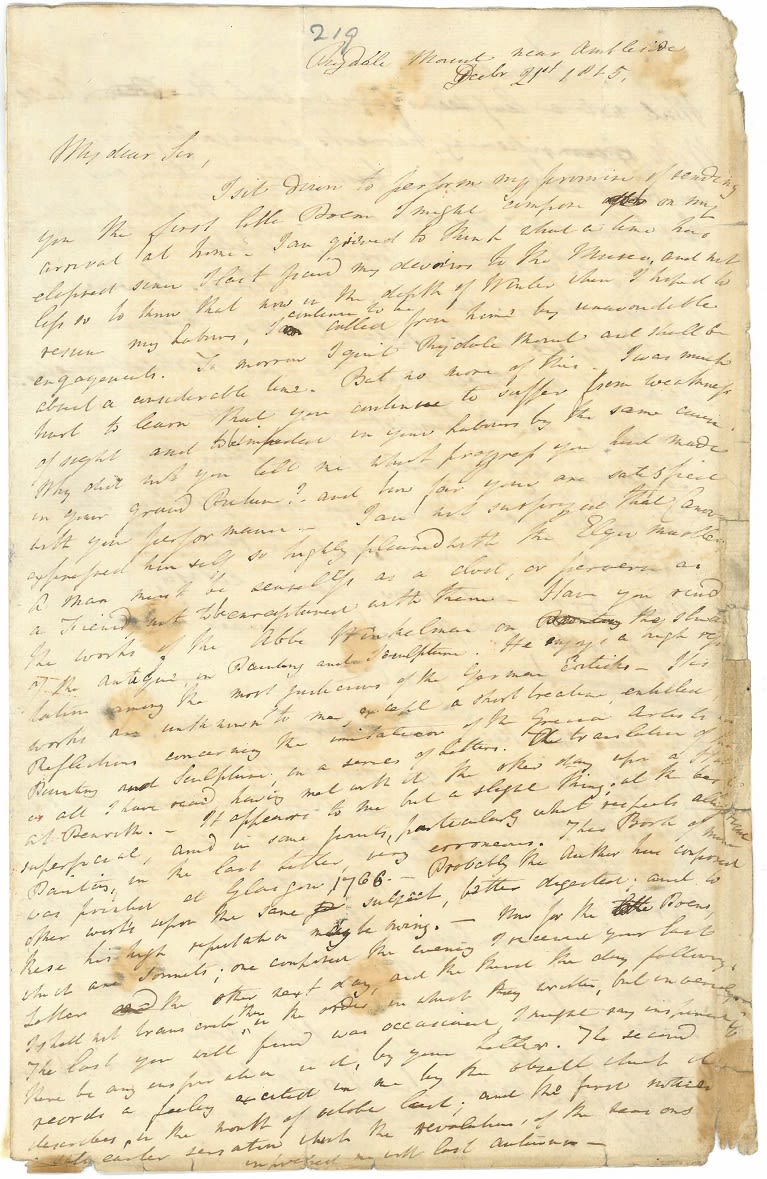 219
Rydale Mount near Ambleside
Decbr 21st 1815.
My dear Sir,
I sit down to perform my promise of sending
you the first little Poem I might compose on my
arrival at home. I am grieved to think what a time has
elapsed since I last paid my devoirs to the Muses, and not
less so to know that now in the depth of Winter when I hoped to
resume my Labours, I continue to be called from home by unavoidable
engagements. To morrow I quit Rydale Mount and shall be
absent a considerable time. But no more of this. I was much
hurt to learn that you continue to suffer from weakness
of sight and to be impeded in your labours by the same cause.
Why did not you tell me what progress you had made
in your grand Picture? and how far you are satisfied
with your performance. I am not surprized that Canova
expressed himself so highly pleased with the Elgin Marbles
a Man must be senseless as a clod, or perverse as
a Fiend not to be enraptured with them. Have you read
the works of the Abbe Winkelman on the study
of the Antique, in Painting and Sculpture. He enjoys a high repu
tation among the most judicious of the German Criticks - His
works are unknown to me, except a short treatise, entitled
Reflections concerning the imitation of the Grecian Artists in
Painting and Sculpture in a series of Letters. translation of
is all I have read having met with it the other day upon a Stall
at Penrith. - It appears to me but a slight thing; at the best
superficial, and in some points, particularly what respects allegorical
Painting, in the last Letter, very erroneous. This Book of mine
was printed at Glasgow 1766. - Probably the Author has composed
other works upon the same subject, better digested; and to
these his high reputation may be owing. - Now for the Poems,
which are Sonnets; one composed the evening I received your last
Letter the other next day, and the third the day following.
I shall not transcribe them in the order in which they were written, but inversely.
The last you will find was occasioned, I might say inspired if
there be any inspiration in it, by your Letter. The second
records a feeling excited in me by the object which it
describes, in the month of october last; and the first notices
a still earlier sensation which the revolution of the seasons
impressed me with last Autumn -